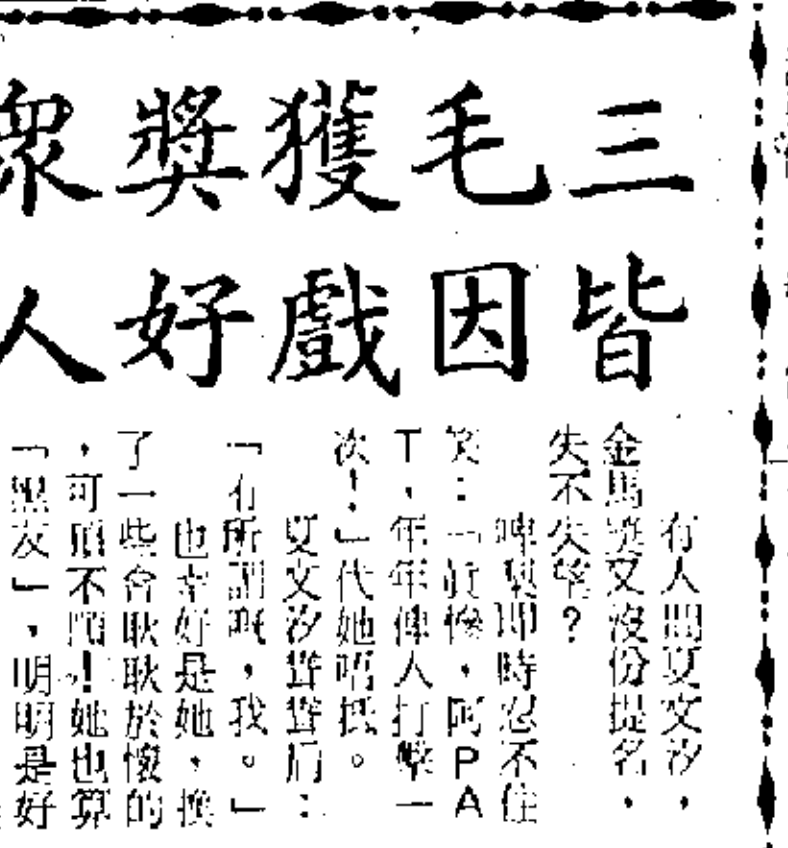 三毛獲獎眾
皆因戲好人
有人問夏文汐，
金馬獎又沒份提名，
失不失望？
啤梨即時忍不住
笑：「眞慘，阿PA
T，年年俾人打擊一
次！」代她唔抵。
夏文汐聳聳肩：
「冇所謂嘅，我。」
也幸好是她，換
了一些會耿耿於懷的
，可頭不閒！她也算
「黑友」，明明是好